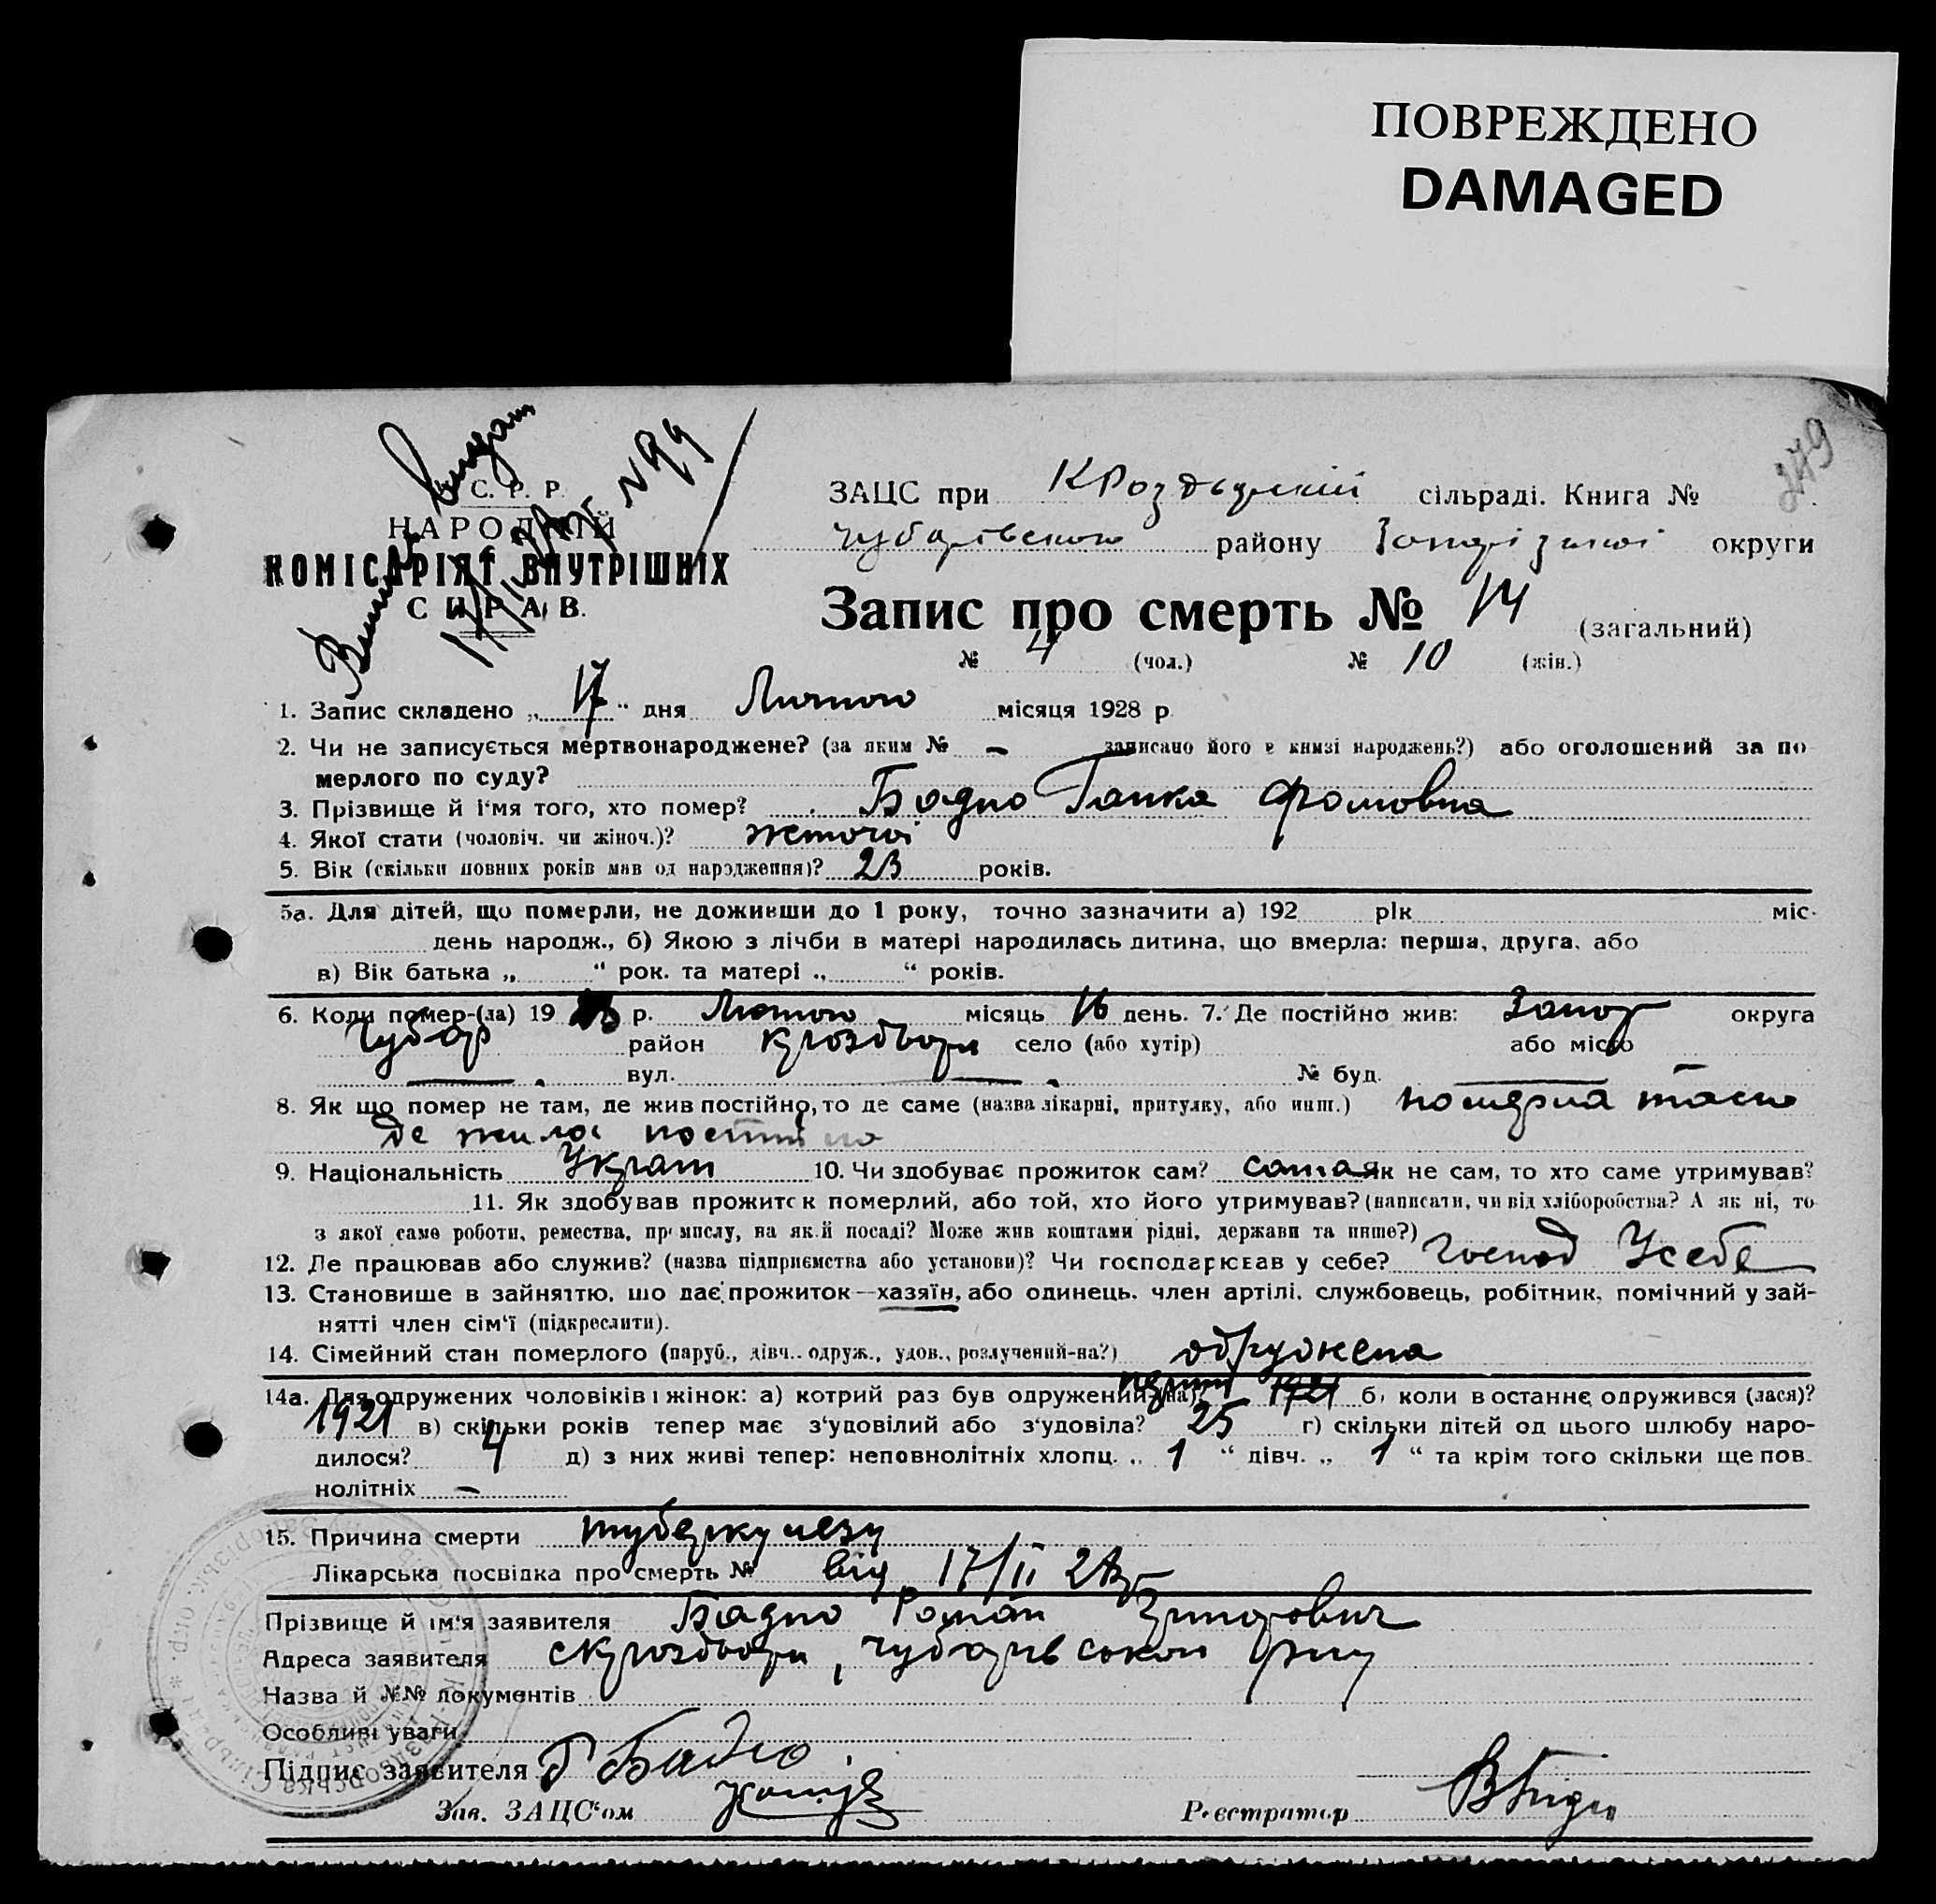 ПОВРЕЖДЕНО
DAMAGED
279
С. Р. Р.
НАРОДНІЙ
КОМІСАРІЯТ ВНУТРІШНІХ
СПРАВ.
ЗАЦС при сільраді. Книга №
району округи
Запис про смерть № 14 (загальний)
№ 4 (чол.) № 10 (жін.)
1. Запис складено „17“ дня Лютого місяця 1928 р
2. Чи не записується мертвонароджене? (за яким № – записано його в книзі народжень?) або оголошений за по
мерлого по суду?
3. Прізвище й і‘мя того, хто помер? Бадно Ганка Фомовна
4. Якої стати (чоловіч. чи жіноч.)? жіночої
5. Вік (скільки повних років мав од народження)? 23 років.
5а. Для дітей, що померли, не доживши до 1 року, точно зазначити а) 192 рік міс.
день народж., б) Якою з лічби в матері народилась дитина, що вмерла: перша, друга, або
в) Вік батька „ “ рок. та матері „ “ років.
6. Коли помер-(ла) 19 28 р. Лютого місяць 16 день. 7. Де постійно жив: Запор округа
Чубар район Кроздвори село (або хутір) або місто
вул. № буд.
8. Як що помер не там, де жив постійно, то де саме (назва лікарні, притулку, або инш.)
де жила постійно
9. Національність Украін 10. Чи здобуває прожиток сам? сама Як не сам, то хто саме утримував?
11. Як здобував прожиток померлий, або той, хто його утримував? (написати, чи від хліборобства? А як ні, то
з якої саме роботи, ремества, промислу, на якій посаді? Може жив коштами рідні, держави та инше?)
12. Де працював або служив? (назва підприємства або установи)? Чи господарював у себе? господ Усебе
13. Становише в зайняттю, що дає прожиток—хазяїн, або одинець, член артілі, службовець, робітник, помічний у зай-
нятті член сім‘ї (підкреслити).
14. Сімейний стан померлого (паруб., дівч., одруж., удов., розлучений-на?) обружена
14а. Для одружених чоловіків і жінок: а) котрий раз був одружений (на)? перший 1921 б) коли востаннє одружився (лася)?
1921 в) скільки років тепер має з‘удовілий або з‘удовіла? 25 г) скільки дітей од цього шлюбу наро-
дилося? 4 д) з них живі тепер: неповнолітніх хлопц. „ 1 “ дівч. „ 1 “ та крім того скільки ще пов-
нолітніх –
15. Причина смерти туберкулезу
Лікарська посвідка про смерть № від 17/II 28р
Прізвище й ім‘я заявителя Бадно Роман
Адреса заявителя с Кроздвори, Чубарівського р-ну
Назва й №№ документів
Особливі уваги
Підпис заявителя Р Бадно
Зав. ЗАЦС‘ом Реєстратор